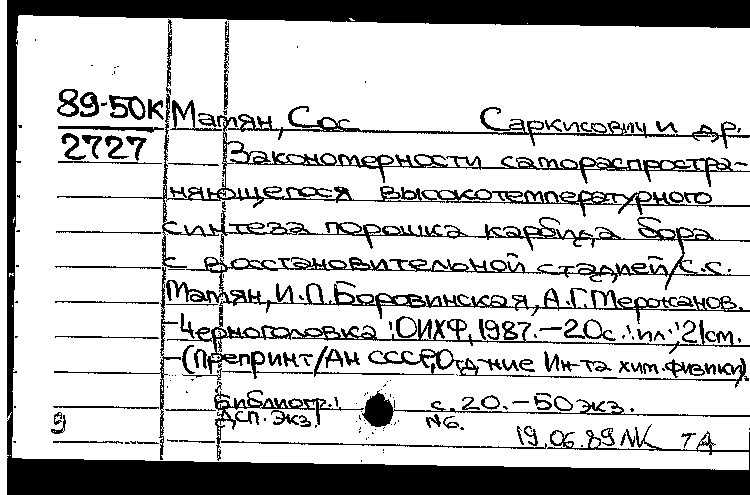 89-50К Матян, Сос Саркисович и др.
2727 Закономерности самораспростра-
няющегося высокотемпературного
синтеза порошка карбида бора
с восстановительной стадией/С.С.
Матян, И.П. Боровинская, А.Г. Мержанов.
-Черноголовка: ОИХФ, 1987.-20с.:ил.;21см.
-(Препринт/АН СССР, Отд-ние Ин-та хим. физики).
Библиогр.: с. 20.-50экз.
9 ДСП. Экз. №6.
19.06.89 NK ТД